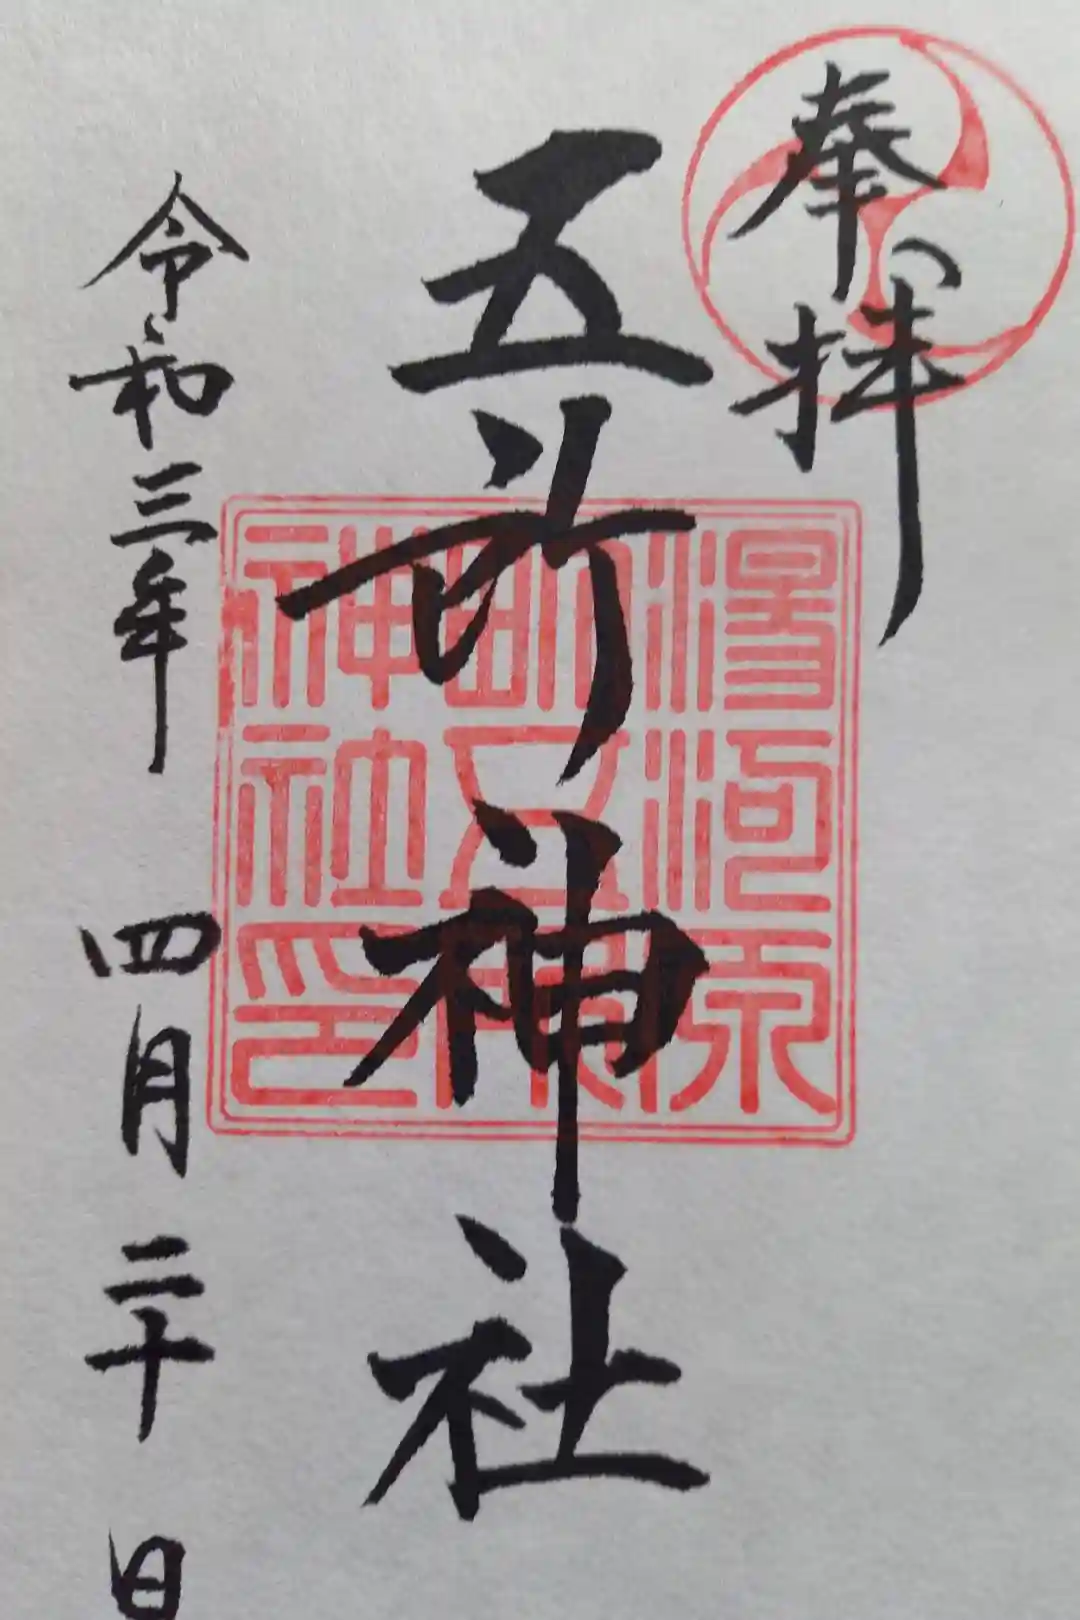 奉拝
五所神社
令和三年 四月二十日
湯河原
町五所
神社印